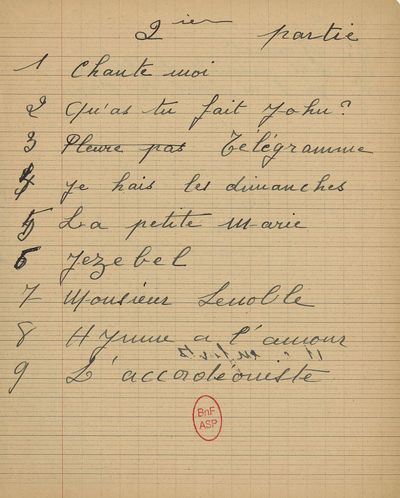 2ième partie
1 Chante moi
2 Qu'as tu fait John?
3 Pleure pas Télégramme
4 Je hais les dimanches
5 La petite Marie
6 Jezebel
7 Monsieur Lenoble
8 Hymne a l'amour
9 L'accordéoniste
BnF
ASP